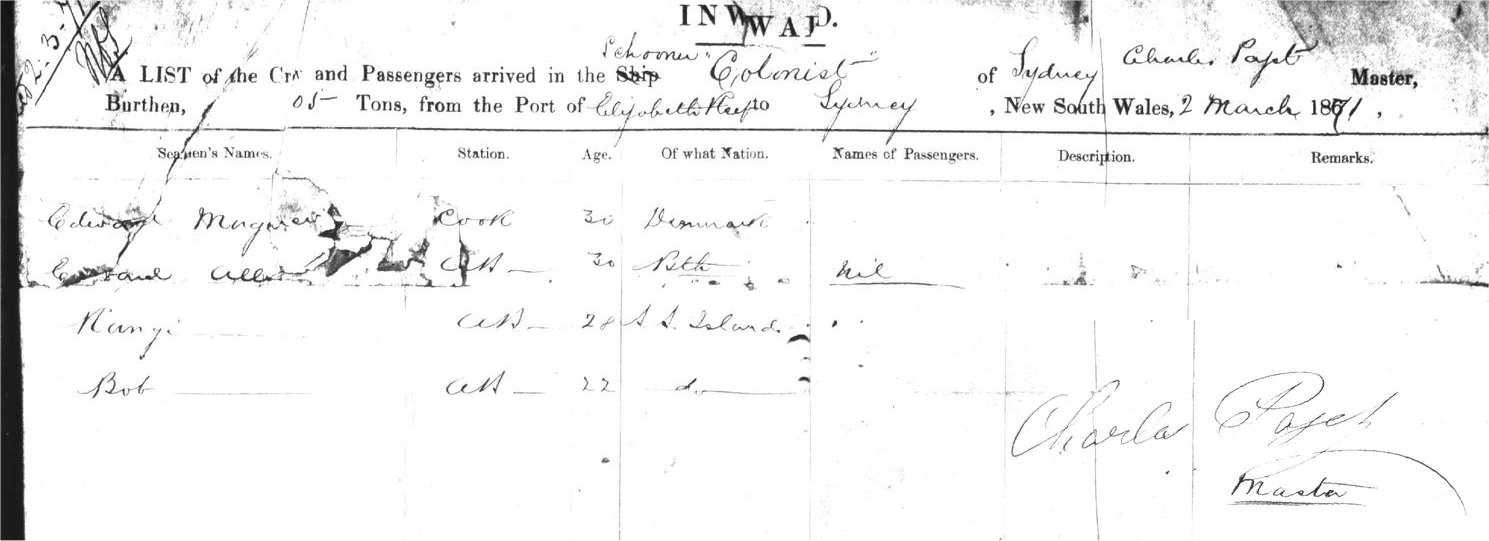 INWARD.
Schooner "Colonist"
A LIST of the Crew and Passengers arrived in the Ship of Sydney Charles Paget Master,
Burthen, 05 Tons, from the Port of Elizabeth Reef to Sydney, New South Wales, 2 March 1871,
Seamen's Names. Station. Age. Of what Nation. Names of Passengers. Description. Remarks.
Edward Cook 30 Denmark
Edward AB 30 Nil
AB 28 S. S. Islands
Bob AB 22 do
Charles Paget
Master